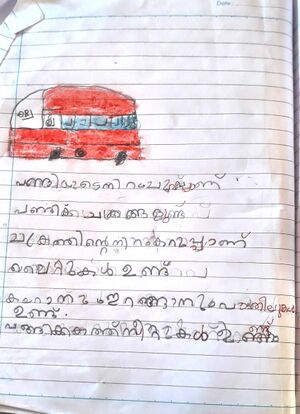 Date:
വണ്ടിയുടെ നിറം ചുമപ്പാണ്
വണ്ടിക്ക് ചക്രങ്ങളുണ്ട്
ചക്രത്തിന്റെ നിറം കറുപ്പാണ്
ലൈറ്റുകൾ ഉണ്ട്
കയറാനും ഇറങ്ങാനും വാതിലുകൾ
ഉണ്ട്.
വണ്ടിക്കകത്ത് സീറ്റുകൾ ഉണ്ട്